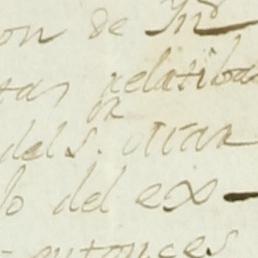 on de Yn^d
tas relatiba
del S.^or Otar
lo del ex-
entonces